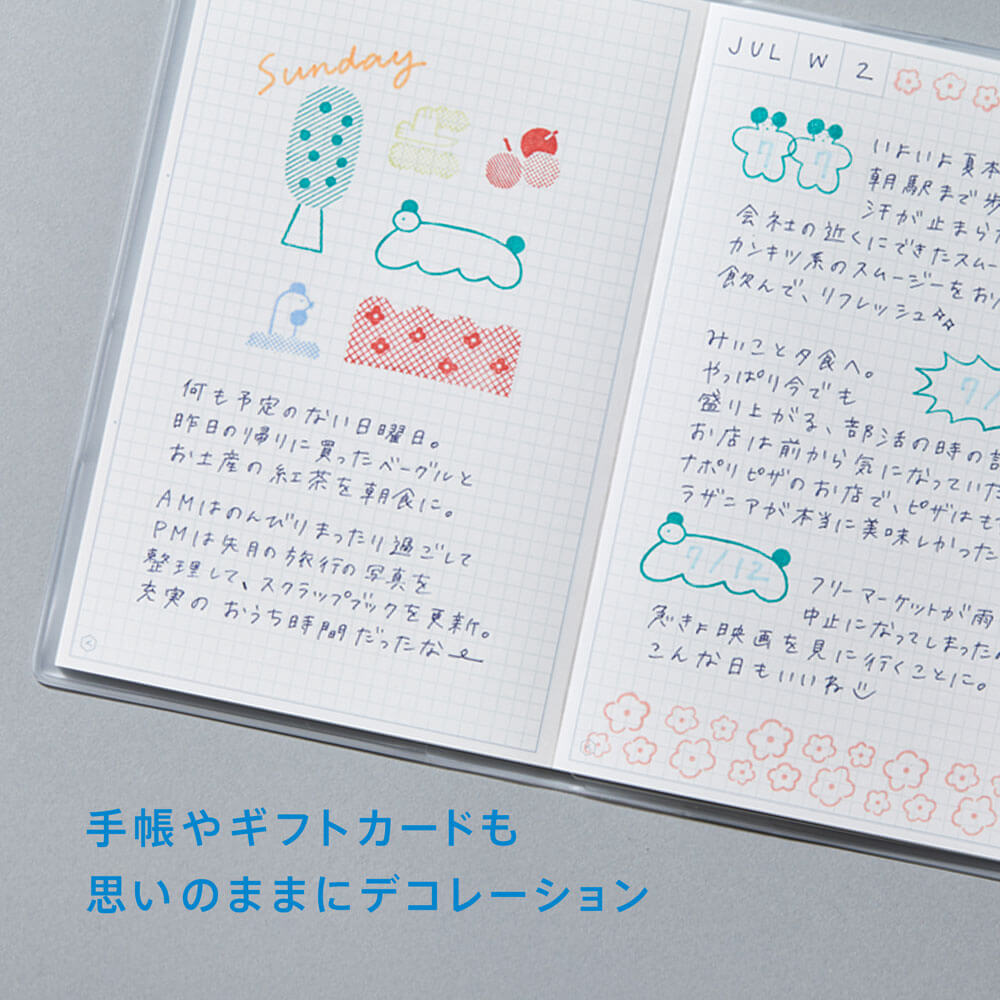 Sunday
何も予定のない日曜日。
昨日の帰りに買ったベーグルと
お土産の紅茶を朝食に。
AMはのんびりまったり過ごして
PMは先月の旅行の写真を
整理して、スクラップブックを更新。
充実の おうち時間だったな
JUL W 2
7 7
いよいよ夏本
朝駅まで歩
汗が止まらな
会社の近くにできたスムー
カンキツ系のスムージーをお
飲んで、リフレッシュ
みぃこと夕食へ。
やっぱり今でも
盛り上がる、部活の時の話
7/
お店は前から気になっていた
ナポリピザのお店で、ピザはも
ラザニアが本当に美味しかった
7/12
フリーマーケットが雨
中止になってしまった
急きょ映画を見に行くことに。
こんな日もいいね
手帳やギフトカードも
思いのままにデコレーション